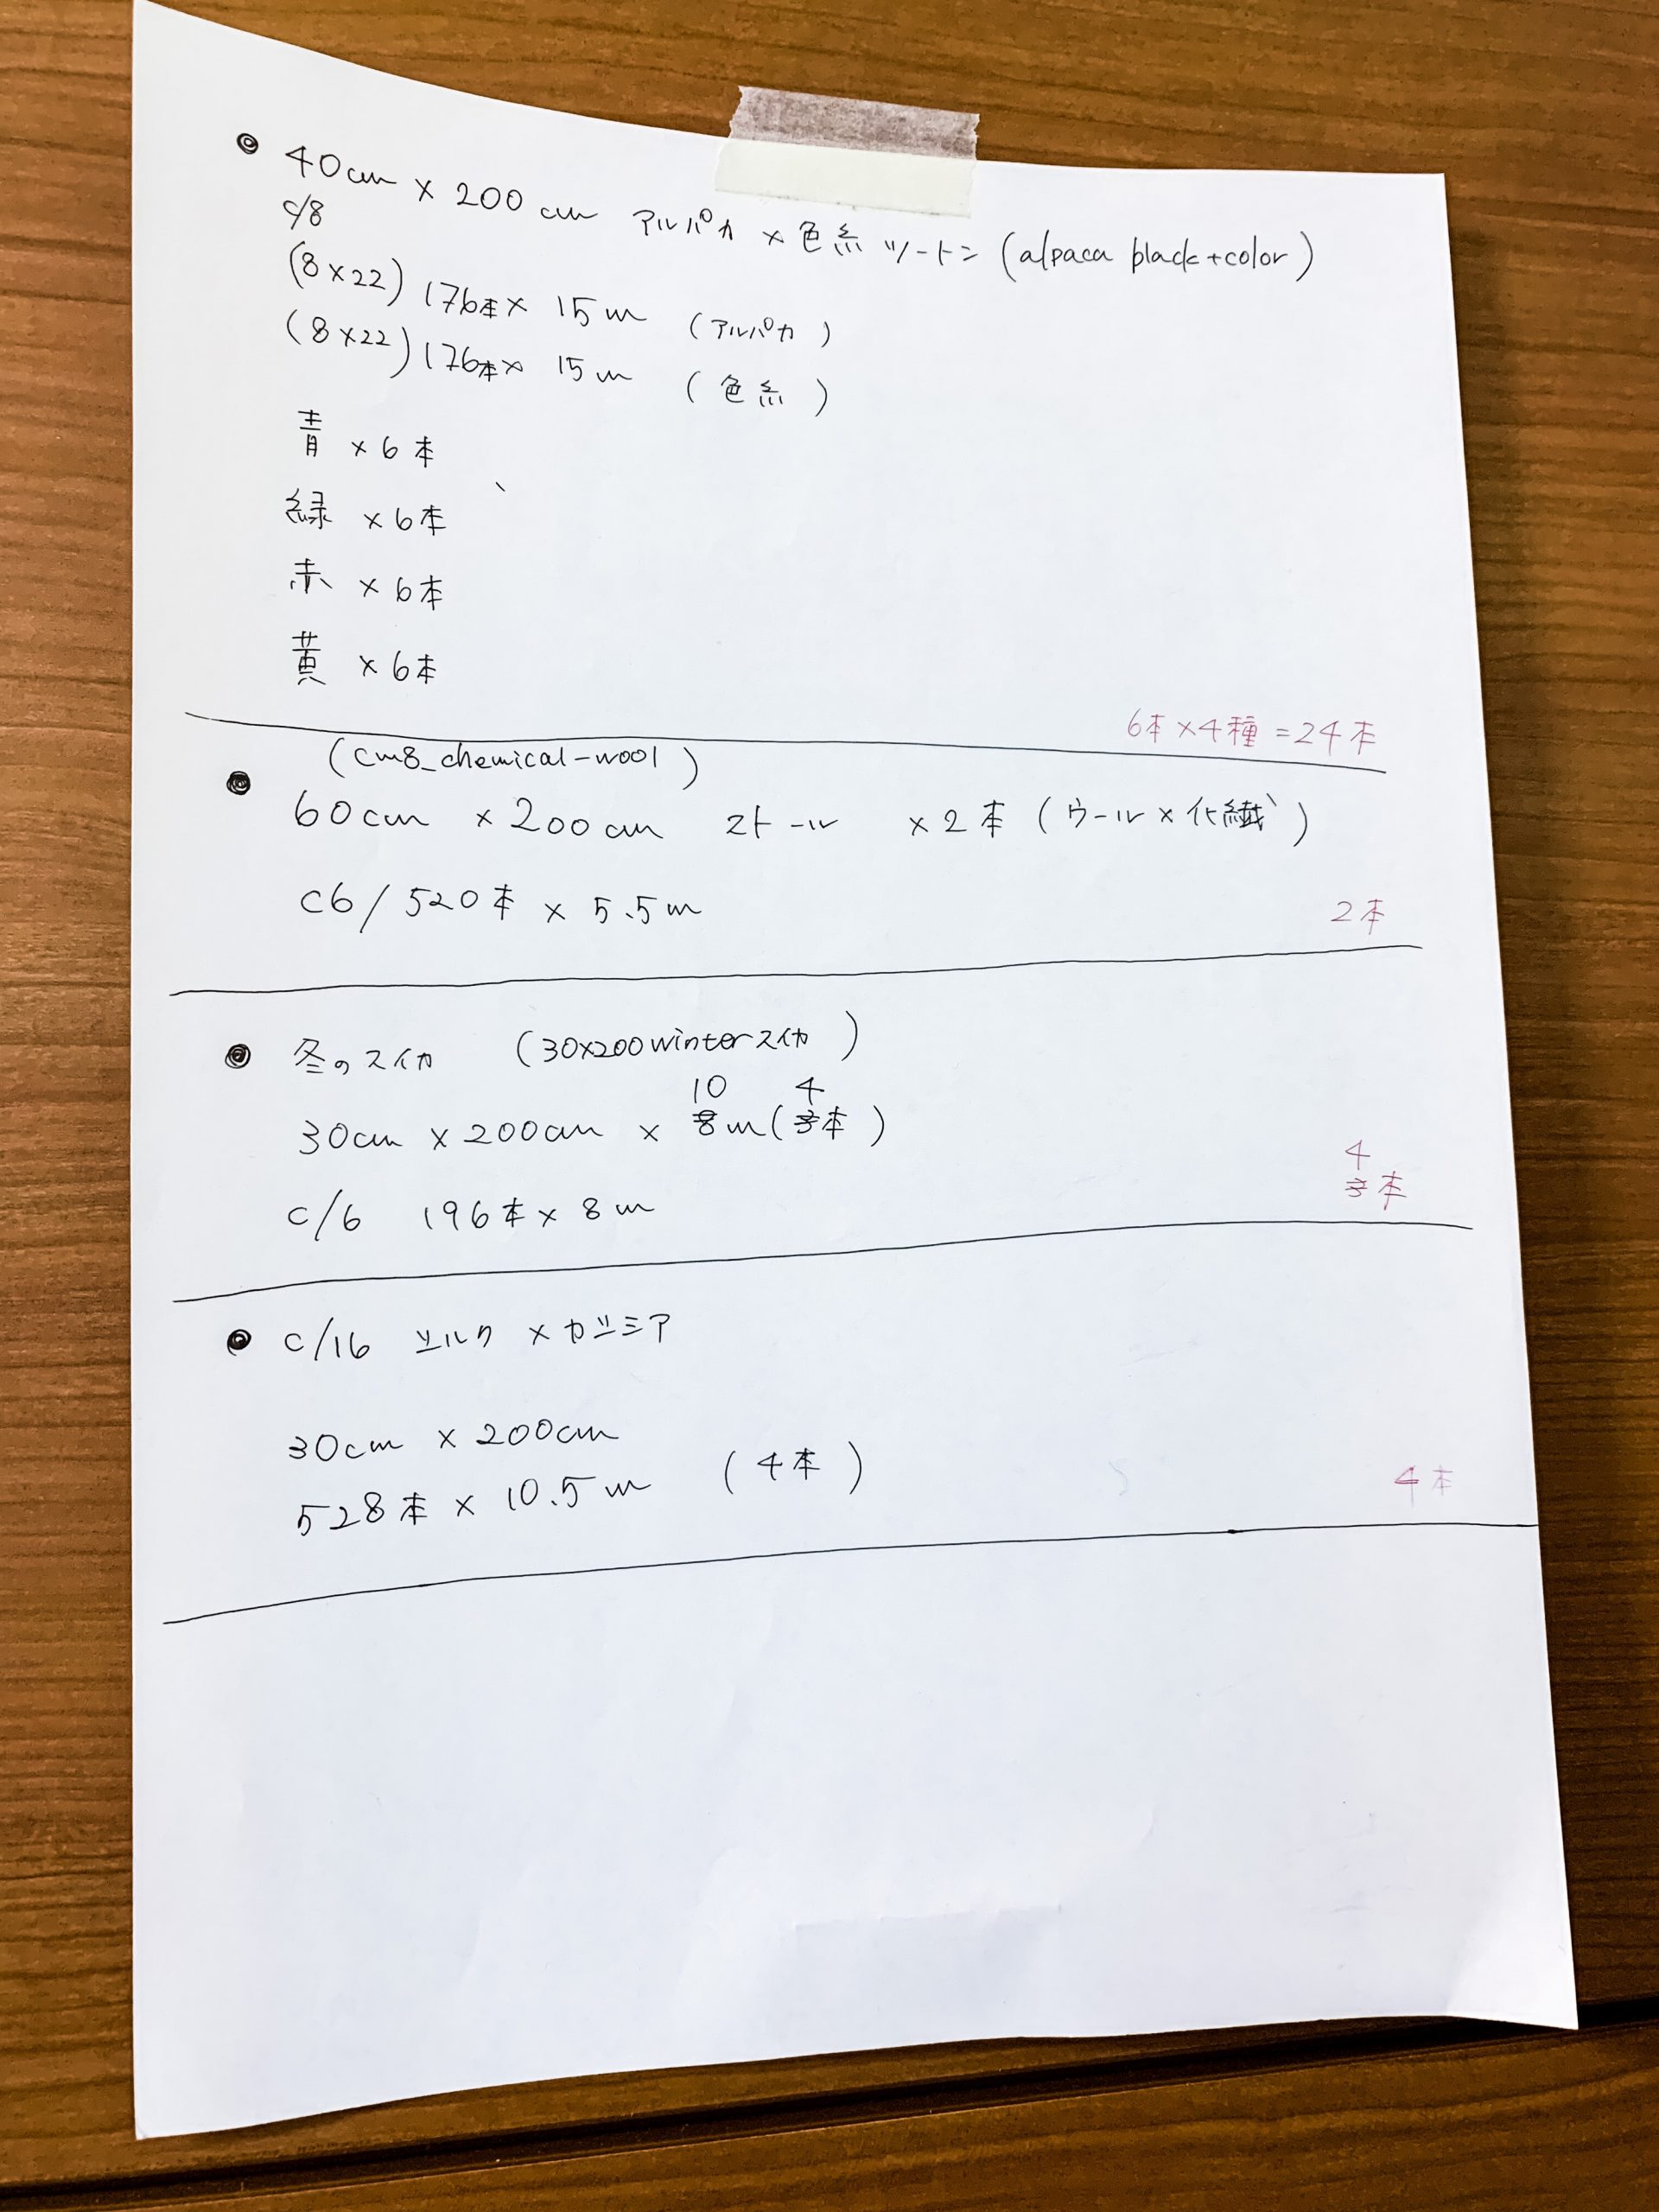 40cm × 200cm アルパカ × 色糸 ツートン (alpaca black+color)
c/8
(8×22) 176本× 15m (アルパカ)
(8×22) 176本× 15m (色糸)
青 ×6本
緑 ×6本
赤 ×6本
黄 ×6本
6本×4種=24本
(cm8_chemical-wool)
60cm ×200cm ストール ×2本 (ウール×化繊)
c6/520本 × 5.5m
2本
冬のスイカ (30×200winterスイカ)
10 4
30cm ×200cm × 8m(3本)
4
3本
c/6 196本× 8m
c/16 シルク ×カシミア
30cm × 200cm
528本 × 10.5m (4本)
4本